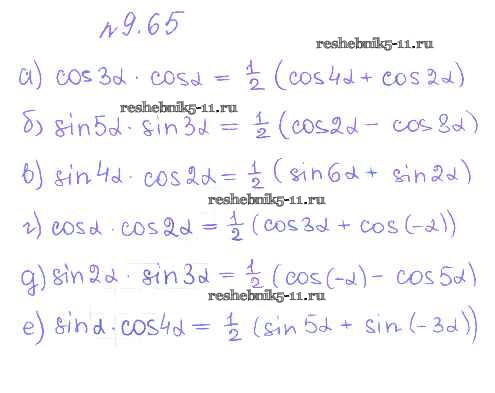 №9.65
reshebnik5-11.ru
а) cos3α · cosα = 1/2 (cos4α + cos2α)
reshebnik5-11.ru
б) sin5α · sin3α = 1/2 (cos2α - cos8α)
в) sin4α · cos2α = 1/2 (sin6α + sin2α)
reshebnik5-11.ru
г) cosα · cos2α = 1/2 (cos3α + cos(-α))
д) sin2α · sin3α = 1/2 (cos(-α) - cos5α)
reshebnik5-11.ru
е) sinα · cos4α = 1/2 (sin5α + sin(-3α))